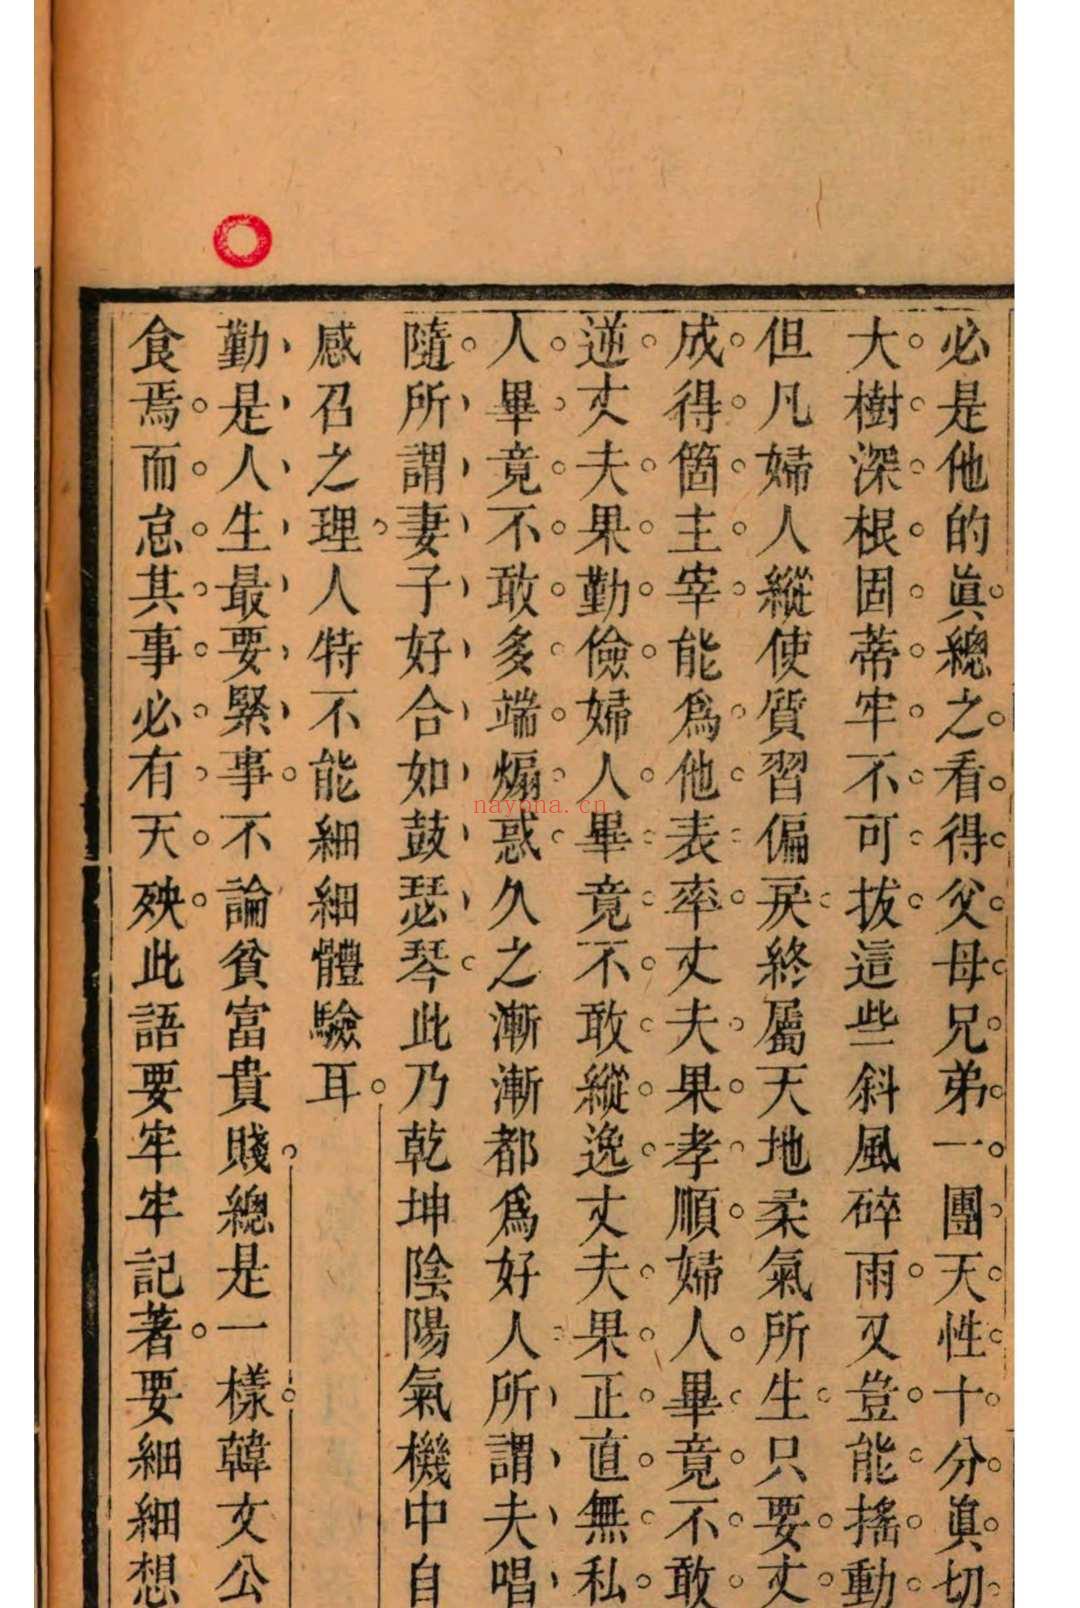 必是他的眞總之看得父母兄弟一團天性十分眞切
大樹深根固蒂牢不可拔這些斜風碎雨又豈能搖動
但凡婦人縱使質習偏戾終屬天地柔氣所生只要丈
成得箇主宰能爲他表率丈夫果孝順婦人畢竟不敢
逆丈夫果勤儉婦人畢竟不敢縱逸丈夫果正直無私
人畢竟不敢多端煽惑久之漸漸都爲好人所謂夫唱
隨所謂妻子好合如鼓瑟琴此乃乾坤陰陽氣機中自
感召之理人特不能細細體驗耳
勤是人生最要緊事不論貧富貴賤總是一樣韓文公
食焉而怠其事必有天殃此語要牢牢記著要細細想
nayona.cn